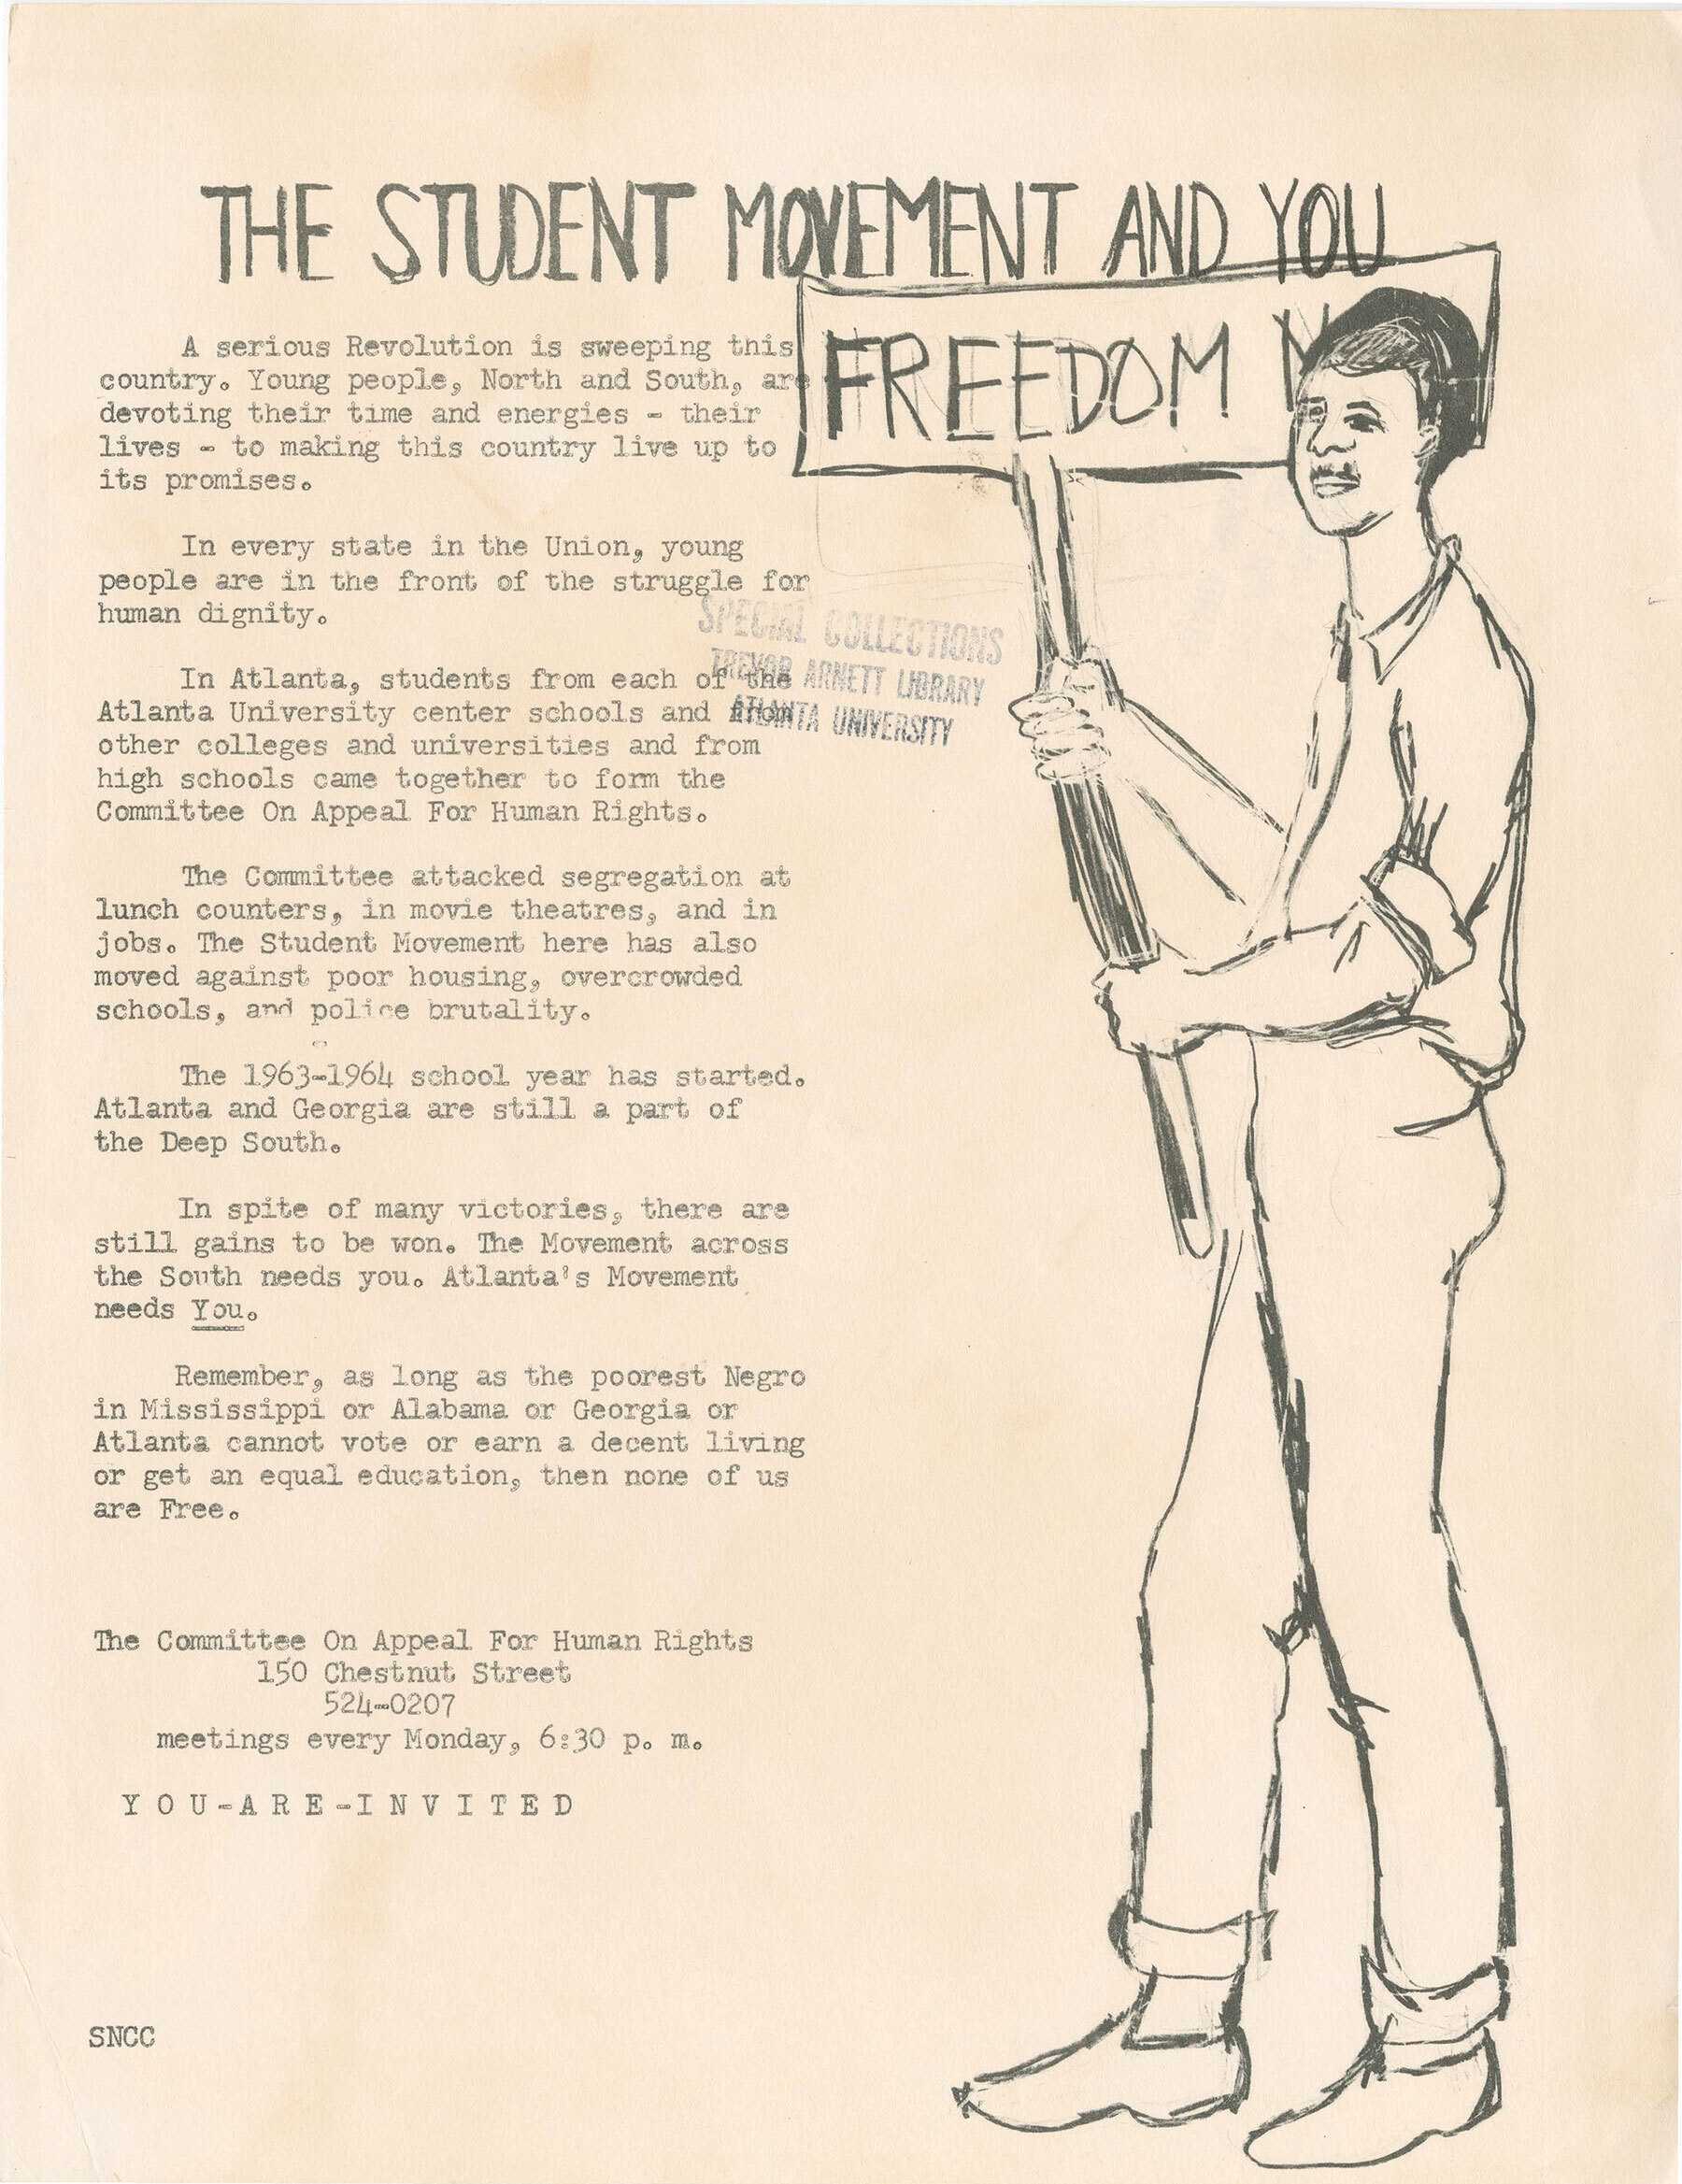 THE STUDENT MOVEMENT AND YOU
FREEDOM
A serious Revolution is sweeping this
country. Young people, North and South, are
devoting their time and energies - their
lives - to making this country live up to
its promises.
In every state in the Union, young
people are in the front of the struggle for
human dignity.
In Atlanta, students from each of the
Atlanta University center schools and from
other colleges and universities and from
high schools came together to form the
Committee On Appeal For Human Rights.
SPECIAL COLLECTIONS
TREVOR ARNETT LIBRARY
ATLANTA UNIVERSITY
The Committee attacked segregation at
lunch counters, in movie theatres, and in
jobs. The Student Movement here has also
moved against poor housing, overcrowded
schools, and police brutality.
The 1963-1964 school year has started.
Atlanta and Georgia are still a part of
the Deep South.
In spite of many victories, there are
still gains to be won. The Movement across
the South needs you. Atlanta's Movement
needs You.
Remember, as long as the poorest Negro
in Mississippi or Alabama or Georgia or
Atlanta cannot vote or earn a decent living
or get an equal education, then none of us
are Free.
The Committee On Appeal For Human Rights
150 Chestnut Street
524-0207
meetings every Monday, 6:30 p. m.
Y O U-A R E-I N V I T E D
SNCC